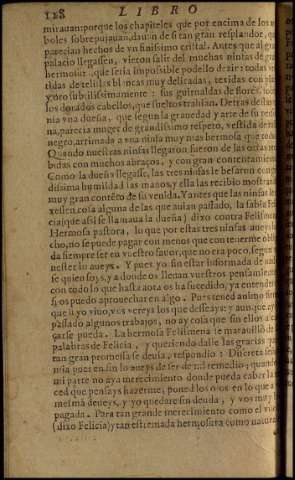 128 LIBRO
mirauan: porque los chapiteles que por encima de los ar
boles sobrepujauan, dauan de si tan gran resplandor, que
parecian hechos de vn finissimo cristal. Antes que al gran
palacio llegassen, vieron salir del muchas ninfas de gran
hermosura, que seria impossible podello dezir: todas ves
tidas de telillas blancas muy delicadas, texidas con plata
y oro subtilissimamente: sus guirnaldas de flores, sobre
los dorados cabellos, que sueltos trahian. Detras dellas
nia vna dueña, que segun la grauedad y arte de su
na, parecia muger de grandissimo respeto, vestida de
negro, arrimada a vna ninfa muy mas hermosa que todas
Quando nuestras ninfas llegaron fueron de las otras
bidas con muchos abraços, y con gran contentamiento
Como la dueña llegasse, las tres ninfas le besaron con gran
dissima humildad las manos, y ella las recibio mostrando
muy gran contẽto de su venida. Y antes que las ninfas le
xessen cosa alguna de las que auian passado, la sabia Feli
cia (que assi se llamaua la dueña) dixo contra Felismena
Hermosa pastora, lo que por estas tres ninfas aueys
cho, no se puede pagar con menos que con tenerme obliga
da siempre ser en vuestro fauor, que no era poco, segun
nester lo aueys. Y pues yo sin estar informada de nadie
se quien soys, y a donde os lleuan vuestros pensamientos
con todo lo que hasta aora os ha sucedido, ya entendereys
si os puedo aprouechar en algo. Pues tened animo firme
que si yo viuo, vos vereys lo que desseays: y aunque ayays
passado algunos trabajos, no ay cosa que sin ellos alcan
çarse pueda. La hermosa Felismena se marauillo de las
palabras de Felicia, y queriendo dalle las gracias que a
tan gran promessa se deuia, respondio: Discreta
ñora mia pues en fin lo aueys de ser de mi remedio, quando
mi parte no aya merecimiento donde pueda caber la
ced que pensays hazerme, poned los ojos en lo que a vos
mesma deueys, y yo quedare sin deuda, y vos muy bien
pagada. Para tan grande merecimiento como el vuestro
(dixo Felicia) y tan estremada hermosura como naturale